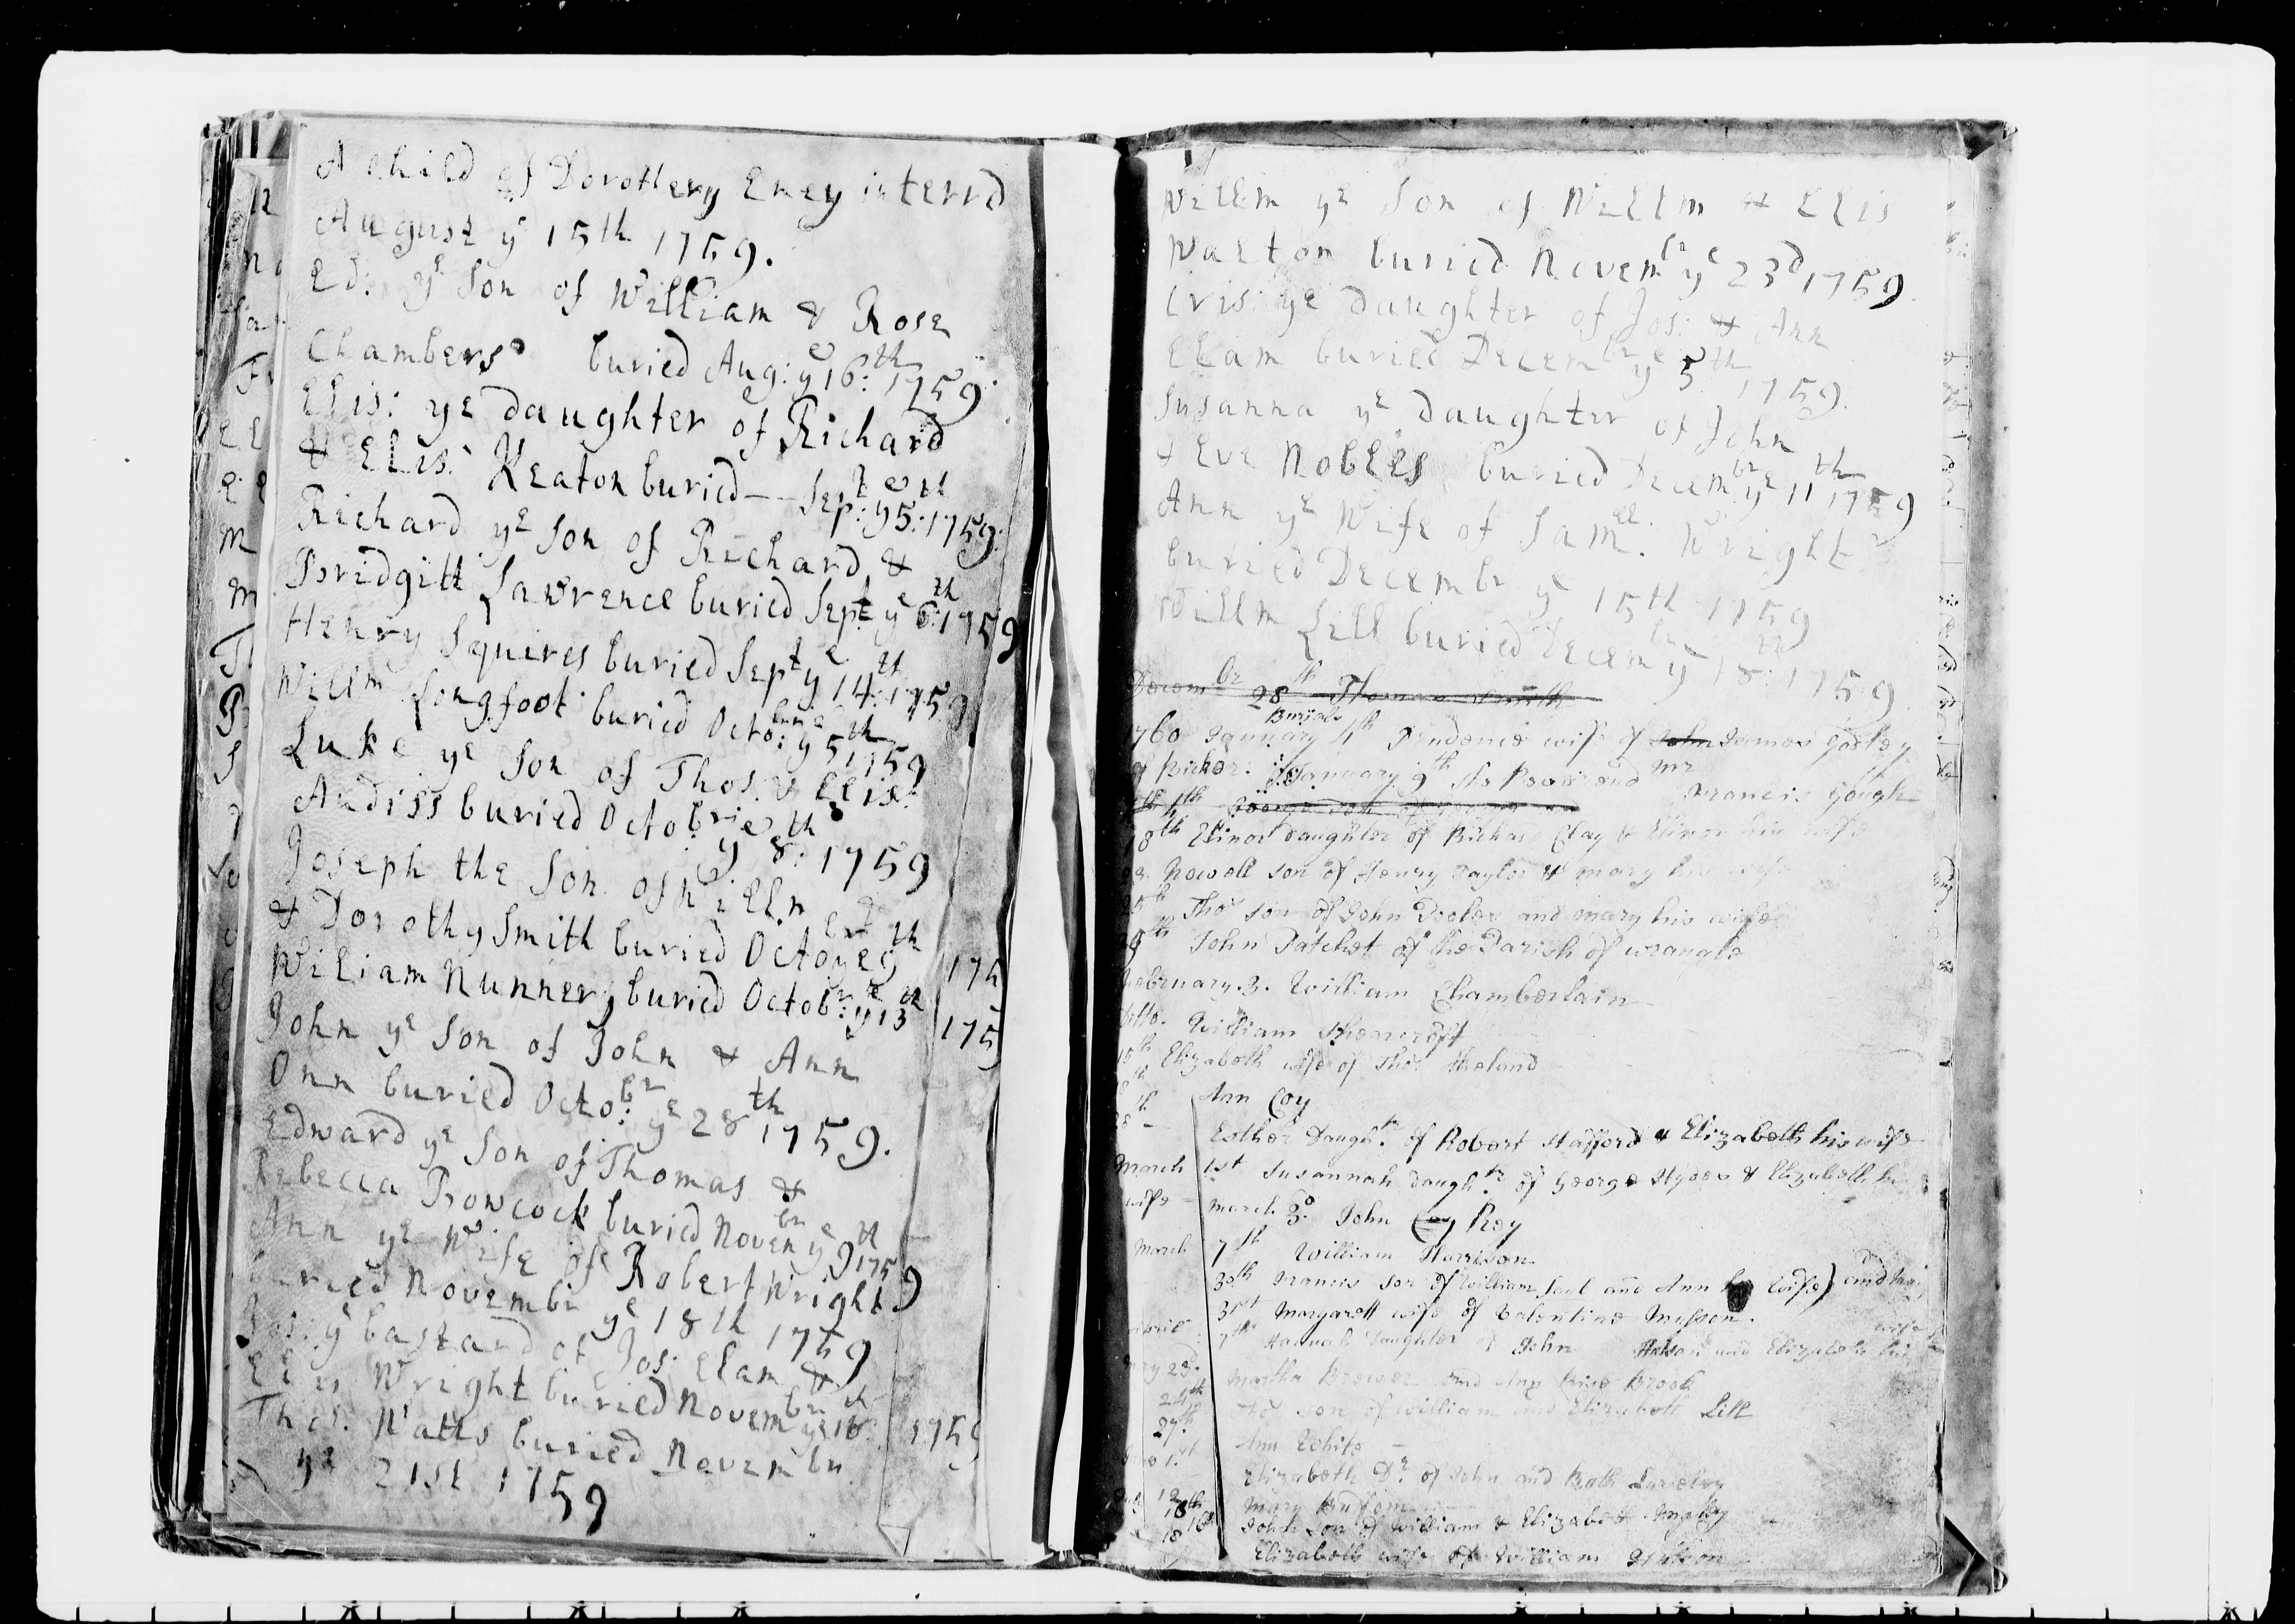 A child of Dorothery Eney interrd
August ye 15th 1759.
Ed: ye Son of William & Rose
Chambers buried Aug: ye 16: th 1759.
Elis: ye daughter of Richard
& Elis: Keaton buried -- Sept: ye 5: th 1759.
Richard ye Son of Richard &
Bridgitt Lawrence buried Sept ye 6: th 1759
Henry Squires buried Sept ye 14: th 1759
Willm Longfoot buried Octo: br ye 5 th 1759
Luke ye Son of Thos. & Elis:
Audiss buried Octobr: ye 8: th 1759
Joseph the Son of Willm
& Dorothy Smith buried Octobr ye 9 th 175
William Nunnery buried Octobr: ye 13 th 175
John ye Son of John & Ann
Onn buried Octo: br ye 28 th 1759.
Edward ye Son of Thomas &
Rebecca Bowcock buried Novem br ye 9 th 1759
Ann ye Wife of Robert Wright
buried Novembr ye 18th 1759
Jos: ye bastard of Jos: Elam &
Elis Wright buried Novem br ye 18: th 1759
Thos. Watts buried Novembr
ye 21st 1759
Willm ye Son of Willm & Elis
Walton buried Novem br ye 23d 1759
Cris: ye daughter of Jos: & Ann
Elam buried Decem br ye 5 th 1759.
Susanna ye daughter of John
& Eve Nobles buried Decem br ye 11 th 1759
Ann ye Wife of Sam ll. Wright
buried Decembr ye 15th 1759
Willm Lill buried Decem br ye 18: th 1759
Decem br 28 th Thomas Smith
Burials
1760 January 4th Prudence wife of John James Godley
January 9th the Reverend Mr Francis Gough
18th Elinor daughter of Richar Clay & Elinor his wife
Nowell son of Henry Taylor & mary his wife
Thos son of John Dooley and mary his wife
John Patchet of the Parish of wrangle
February. 3. William Chamberlain
ditto. William Shearcroft
15th Elizabeth wife of Thos Sheland
Ann Coy
28 - Esther Daughtr. of Robert Stafford & Elizabeth his wife
March 1st Susannah daughtr. of George Hydes & Elizabeth his
wife - march 3d. John Coy Roy
March 7th William Harrison
30th Francis son of William Saul and Ann his wife
31st Margarett wife of Valentine Musson.
7th Hannah Daughter of John and Elizabeth his wife
23d. Martha Brewer and Ann Brook
24th Thos son of william and Elizabeth Lill
29th. Ann White -
1st Elizabeth Dr. of John and Ruth
12th Mary
16th John Son of William & Elizabeth
18 Elizabeth wife of William